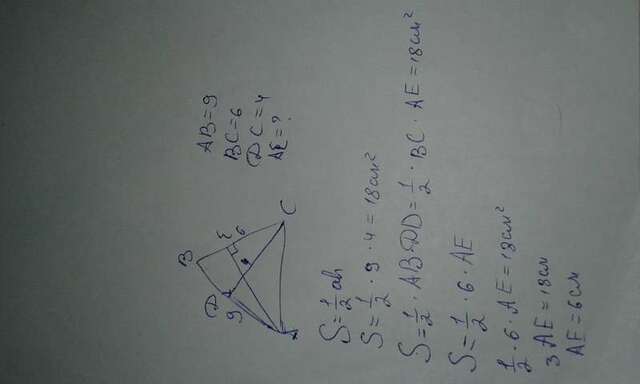 B
D
9
E
6
A
C
AB=9
BC=6
DC=4
AE=?
S=1/2 ah
S=1/2 · 9 · 4 = 18 см²
S=1/2 · AB · DD = 1/2 · BC · AE = 18 см²
S=1/2 · 6 · AE
1/2 · 6 · AE = 18 см²
3 AE = 18 см
AE = 6 см